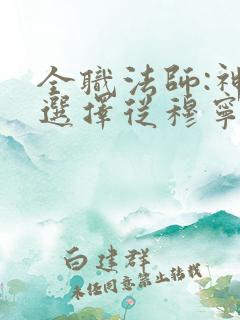 全職法師:神
選擇從穆寧
白建群
未经同意禁止转载